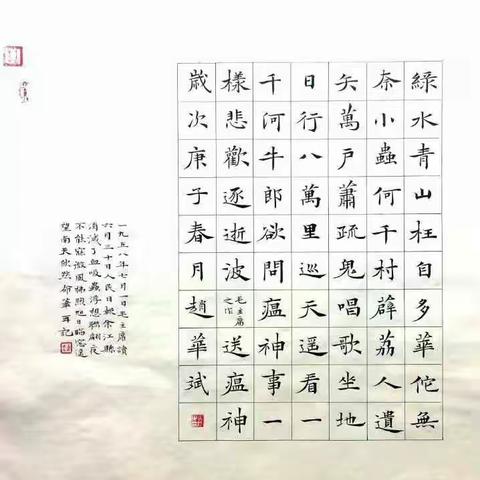 綠水青山枉自多華佗無
奈小蟲何千村薜荔人遺
矢萬戶蕭疏鬼唱歌坐地
日行八萬里巡天遥看一
千河牛郎欲問瘟神事一
樣悲歡逐逝波
毛主席
之作
送瘟神
歲次庚子春月趙華斌
一九五八年七月一日毛主席讀
六月三十日人民日報余江縣
消滅了血吸蟲浮想聯翩夜
不能寐微風拂煦旭日臨窗遥
望南天欣然命筆記